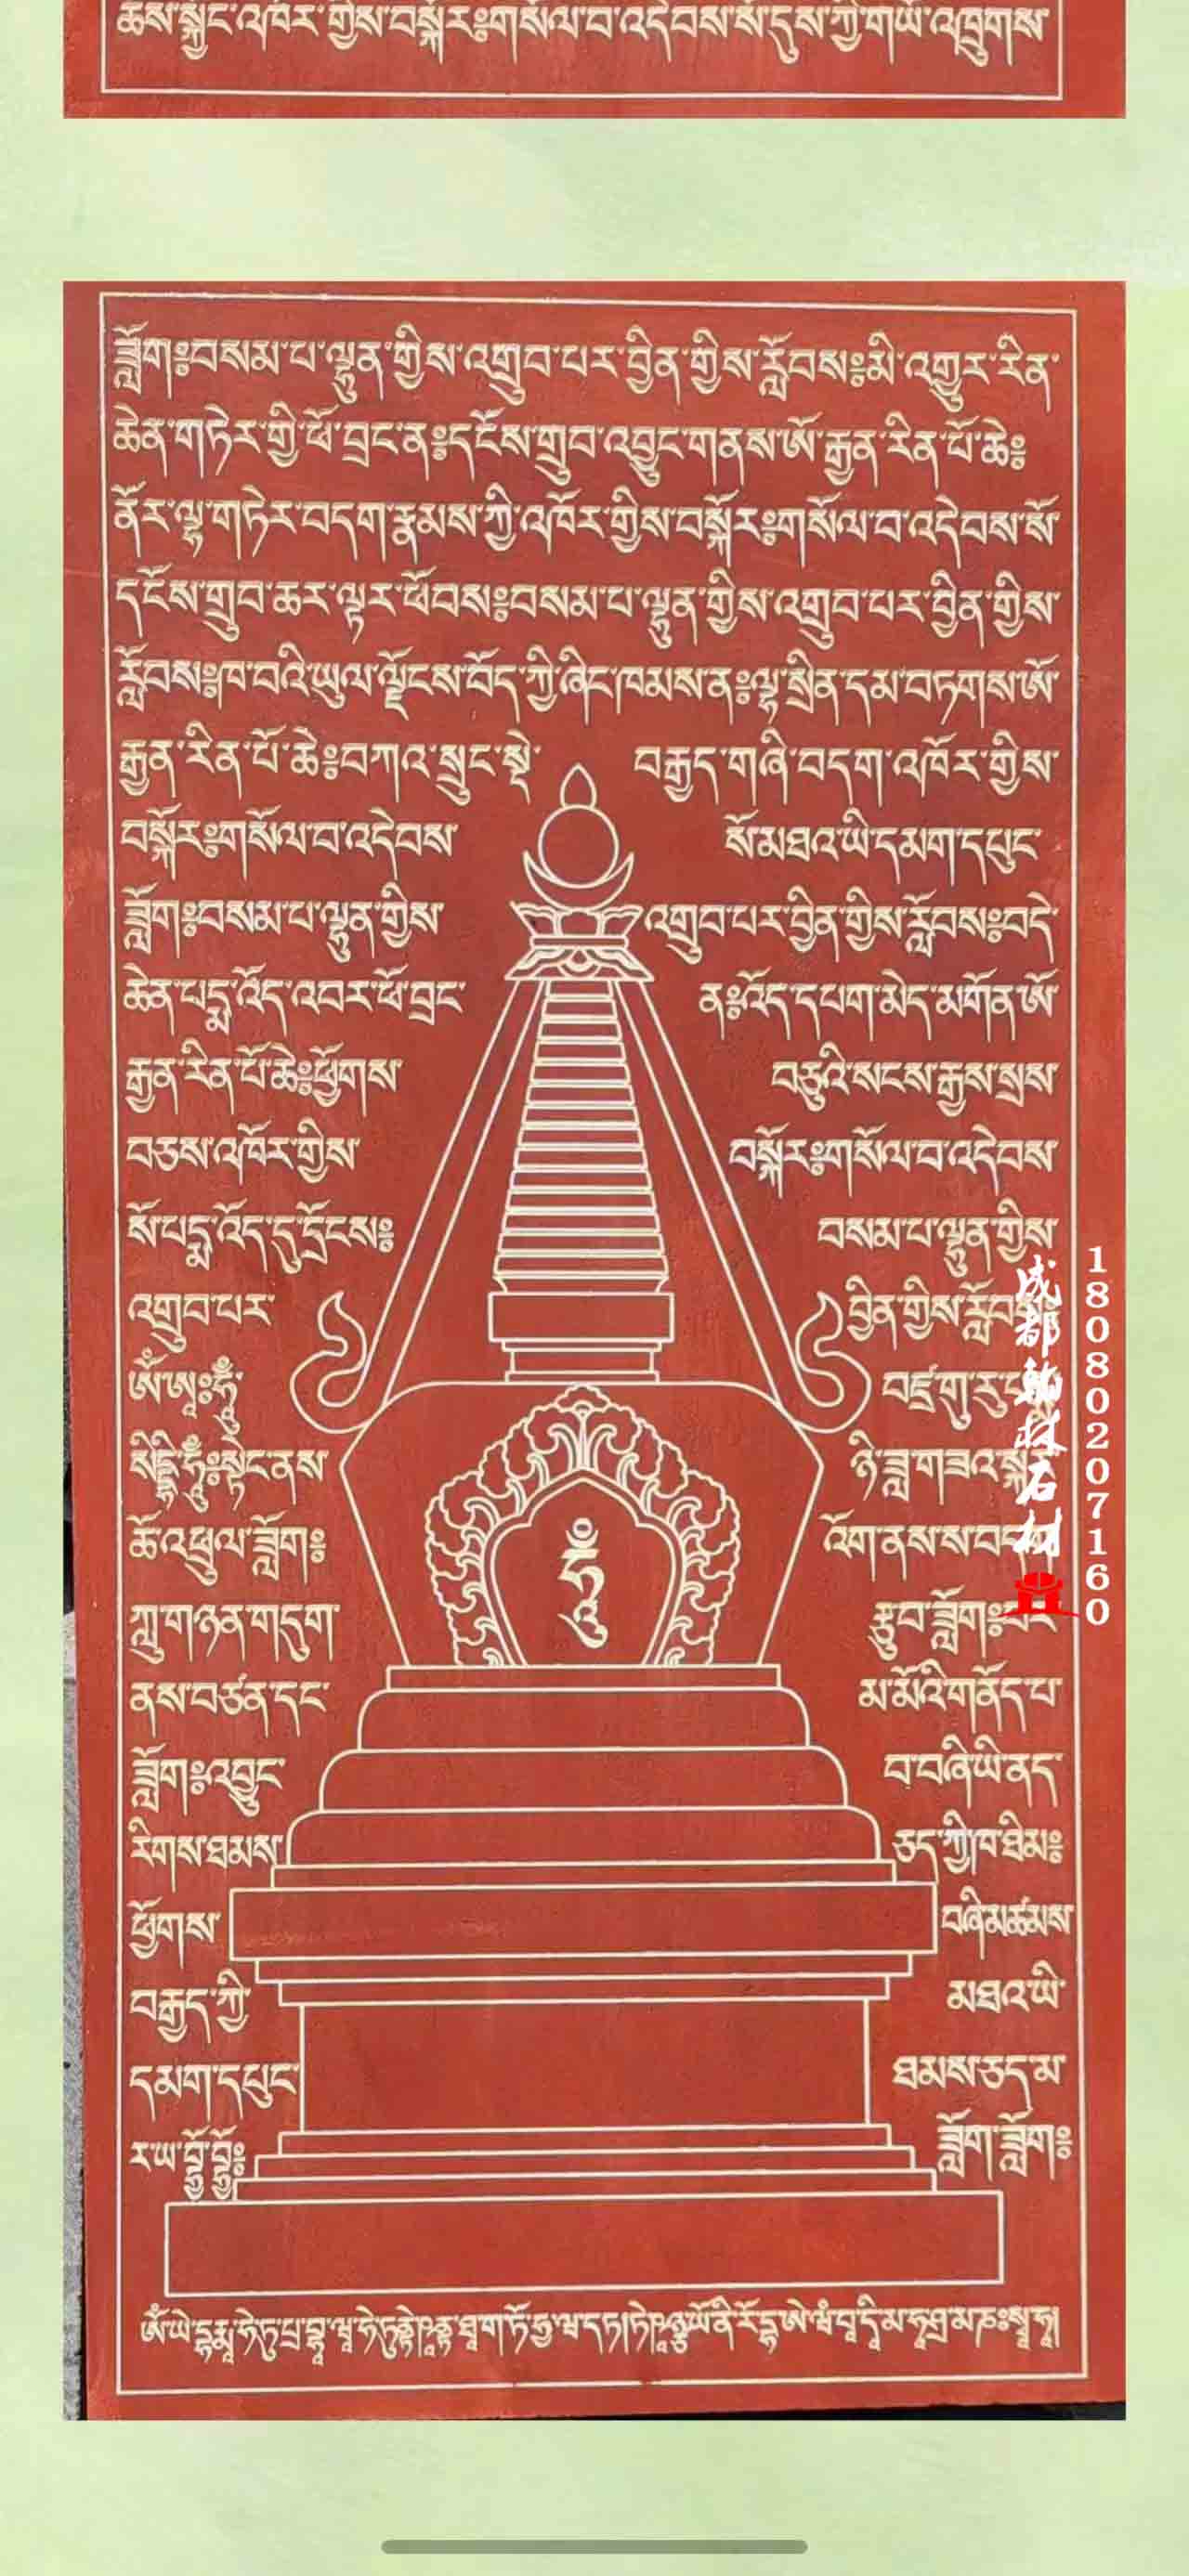 ཆོས་སྐྱོང་འཁོར་གྱིས་བསྐོར༔གསོལ་བ་འདེབས་སོ་དུས་ཀྱི་གཡོ་འཁྲུགས་
ཟློག༔བསམ་པ་ལྷུན་གྱིས་འགྲུབ་པར་བྱིན་གྱིས་རློབས༔མི་འགྱུར་རིན་
ཆེན་གཏེར་གྱི་ཕོ་བྲང་ན༔དངོས་གྲུབ་འབྱུང་གནས་ཨོ་རྒྱན་རིན་པོ་ཆེ༔
ནོར་ལྷ་གཏེར་བདག་རྣམས་ཀྱི་འཁོར་གྱིས་བསྐོར༔གསོལ་བ་འདེབས་སོ་
དངོས་གྲུབ་ཆར་ལྟར་ཕོབས༔བསམ་པ་ལྷུན་གྱིས་འགྲུབ་པར་བྱིན་གྱིས་
རློབས༔ཁ་བའི་ཡུལ་ལྗོངས་བོད་ཀྱི་ཞིང་ཁམས་ན༔ལྷ་སྲིན་དམ་བཏགས་ཨོ་
རྒྱན་རིན་པོ་ཆེ༔བཀའ་སྲུང་སྡེ་ བརྒྱད་གཞི་བདག་འཁོར་གྱིས་
བསྐོར༔གསོལ་བ་འདེབས་ སོ་མཐའ་ཡི་དམག་དཔུང་
ཟློག༔བསམ་པ་ལྷུན་གྱིས་ འགྲུབ་པར་བྱིན་གྱིས་རློབས༔བདེ་
ཆེན་པདྨ་འོད་འབར་ཕོ་བྲང་ ན༔འོད་དཔག་མེད་མགོན་ཨོ་
རྒྱན་རིན་པོ་ཆེ༔ཕྱོགས་ བཅུའི་སངས་རྒྱས་སྲས་
བཅས་འཁོར་གྱིས་ བསྐོར༔གསོལ་བ་འདེབས་
སོ་པདྨ་འོད་དུ་དྲོངས༔ བསམ་པ་ལྷུན་གྱིས་
འགྲུབ་པར་ བྱིན་གྱིས་
ཨོཾ་ཨཱཿཧཱུྃ་ བཛྲ་གུ་རུ་
སིདྡྷི་ཧཱུྃ༔སྟེང་ནས་ ཉི་ཟླ་གཟའ་
ཧཱུྃ
ཆོ་འཕྲུལ་ཟློག༔ འོག་ནས་ས་
ཀླུ་གཉན་གདུག་ རྩུབ་ཟློག༔བར་
ནས་བཙན་དང་ མ་མོའི་གནོད་པ་
ཟློག༔འབྱུང་ བ་བཞི་ཡི་ནད་
རིགས་ཐམས་ ཅད་ཀྱི་ཁ་ཐིམ༔
ཕྱོགས་ བཞི་མཚམས་
བརྒྱད་ཀྱི་ མཐའ་ཡི་
དམག་དཔུང་ ཐམས་ཅད་མ་
ར་ཡ་ ཟློག་ཟློག༔
成都
石材
18080207160